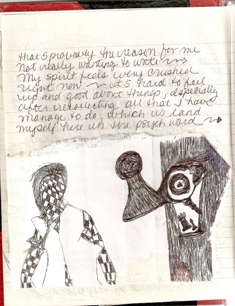 that's probably the reason for me
not really wanting to write
My spirit feels very crushed
right now it's hard to feel
up and good about things, especially
after recollecting all that I have
manage to do, which is land
myself here in the psych ward